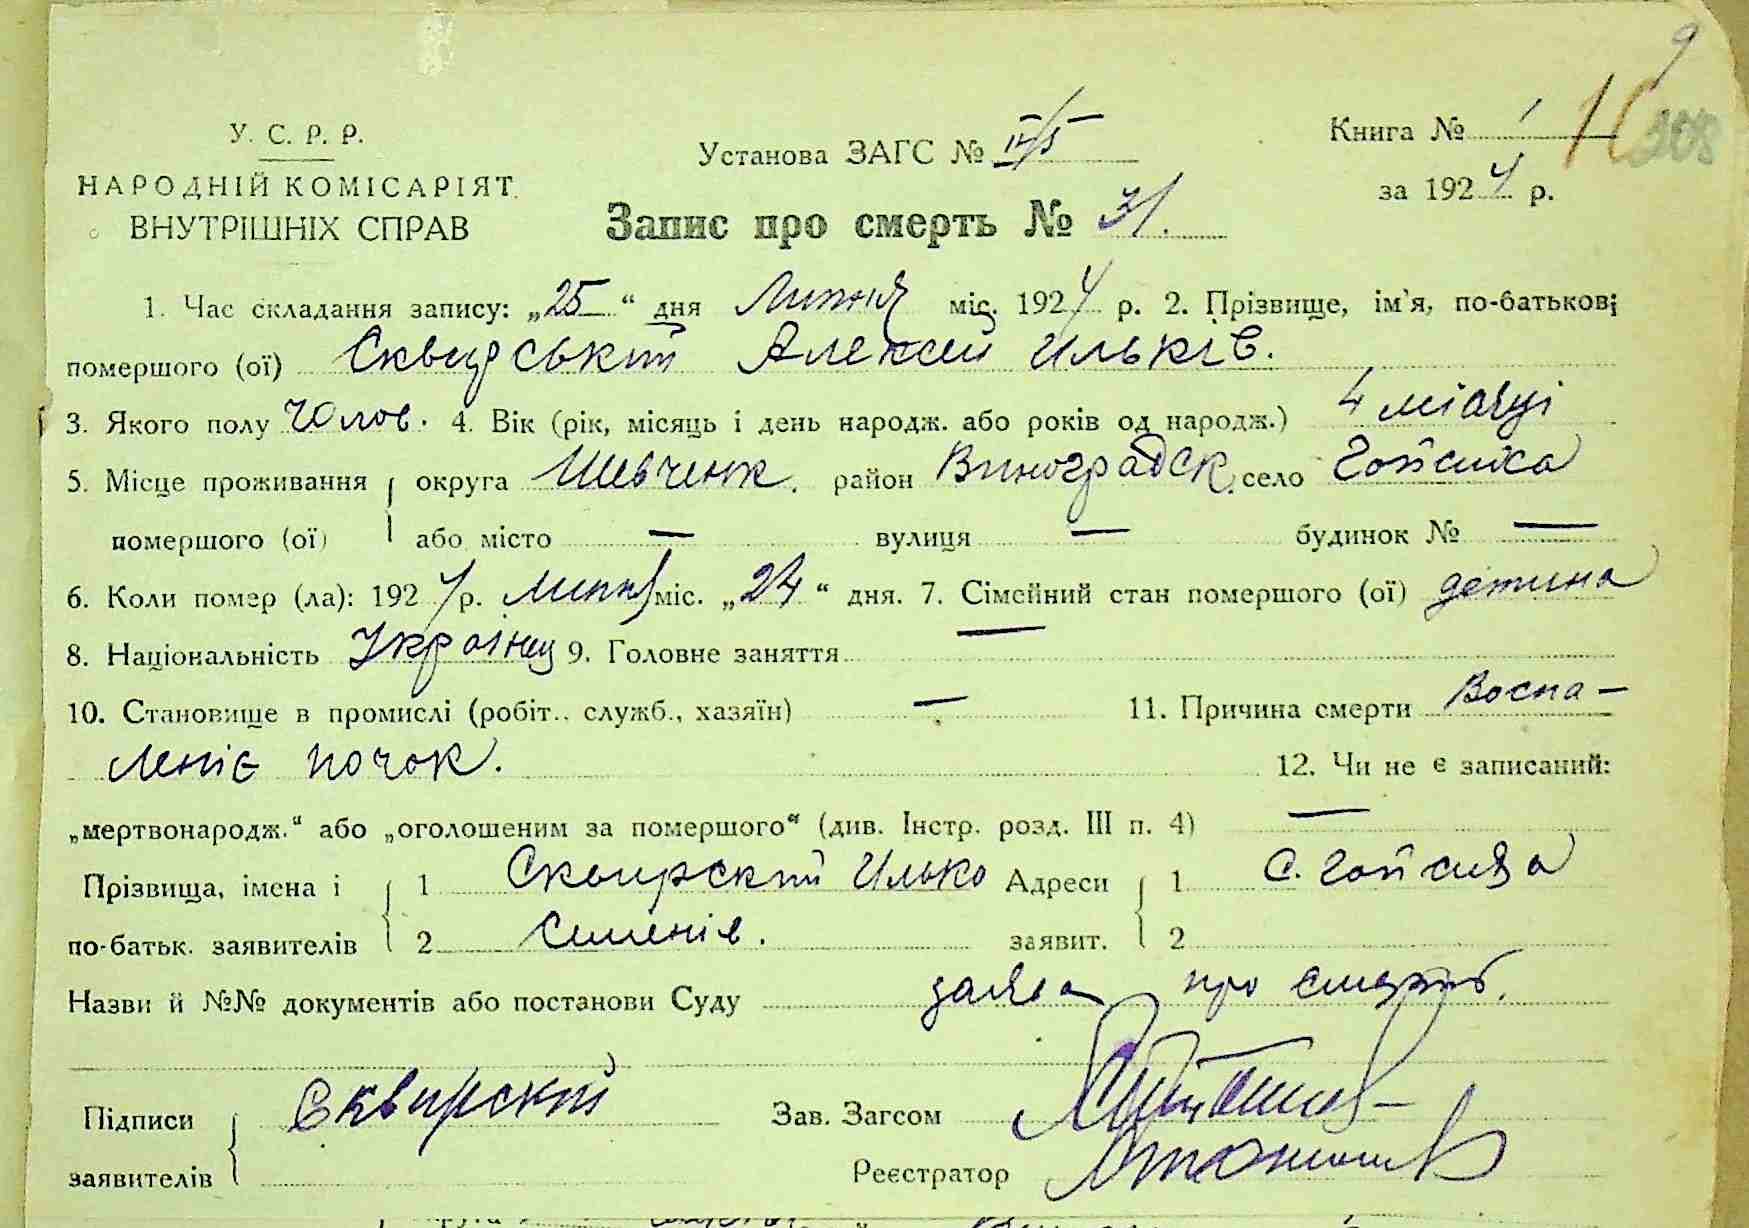 9
У. С. Р. Р.
НАРОДНІЙ КОМІСАРІЯТ
ВНУТРІШНІХ СПРАВ
Установа ЗАГС №
Книга № 1
308
за 1924 р.
Запис про смерть № 31.
1. Час складання запису: „25“ дня Липня міс. 1924 р. 2. Прізвище, ім'я, по-батькові
помершого (ої) Сквирський Алексей Ильків.
3. Якого полу Чолов. 4. Вік (рік, місяць і день народж. або років од народж.) 4 місяці
5. Місце проживання округа Шевченк. район Виноградск. село
помершого (ої) або місто — вулиця — будинок № —
6. Коли помер (ла): 1924 р. Липня міс. „24“ дня. 7. Сімейний стан помершого (ої) детина
8. Національність Українец 9. Головне заняття —
10. Становище в промислі (робіт., служб., хазяїн) — 11. Причина смерти Воспа-
леніє почок. 12. Чи не є записаний:
„мертвонародж.“ або „оголошеним за помершого“ (див. Інстр. розд. III п. 4) —
Прізвища, імена і 1 Сквирский Илько Адреси 1 с.
по-батьк. заявителів 2 Семенів. заявит. 2
Назви й №№ документів або постанови Суду заява про смерть.
Підписи Сквирский Зав. Загсом
заявителів Реєстратор